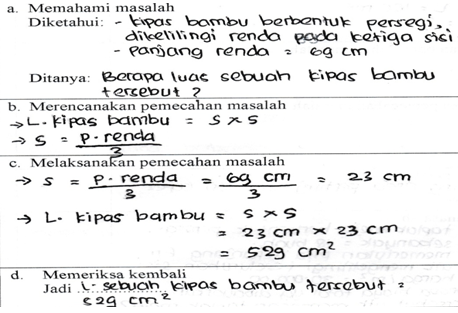 a. Memahami masalah
Diketahui: - kipas bambu berbentuk persegi,
dikelilingi renda pada ketiga sisi
- panjang renda = 69 cm
Ditanya: Berapa luas sebuah kipas bambu
tersebut ?
b. Merencanakan pemecahan masalah
→ L. kipas bambu = s × s
→ s = p. renda / 3
c. Melaksanakan pemecahan masalah
→ s = p. renda / 3 = 69 cm / 3 = 23 cm
→ L. kipas bambu = s × s
= 23 cm × 23 cm
= 529 cm²
d. Memeriksa kembali
Jadi L. sebuah kipas bambu tersebut =
529 cm²